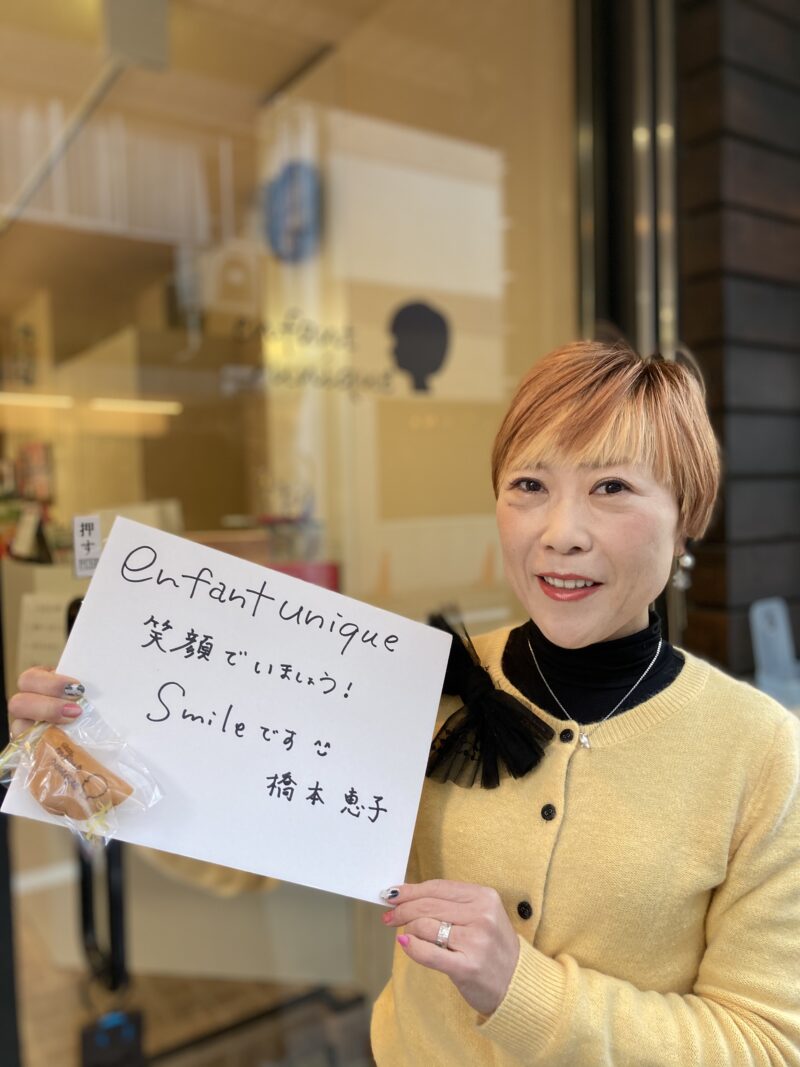 enfant
unique
押す
enfant unique
笑顔でいましょう!
Smileです
橋本 恵子